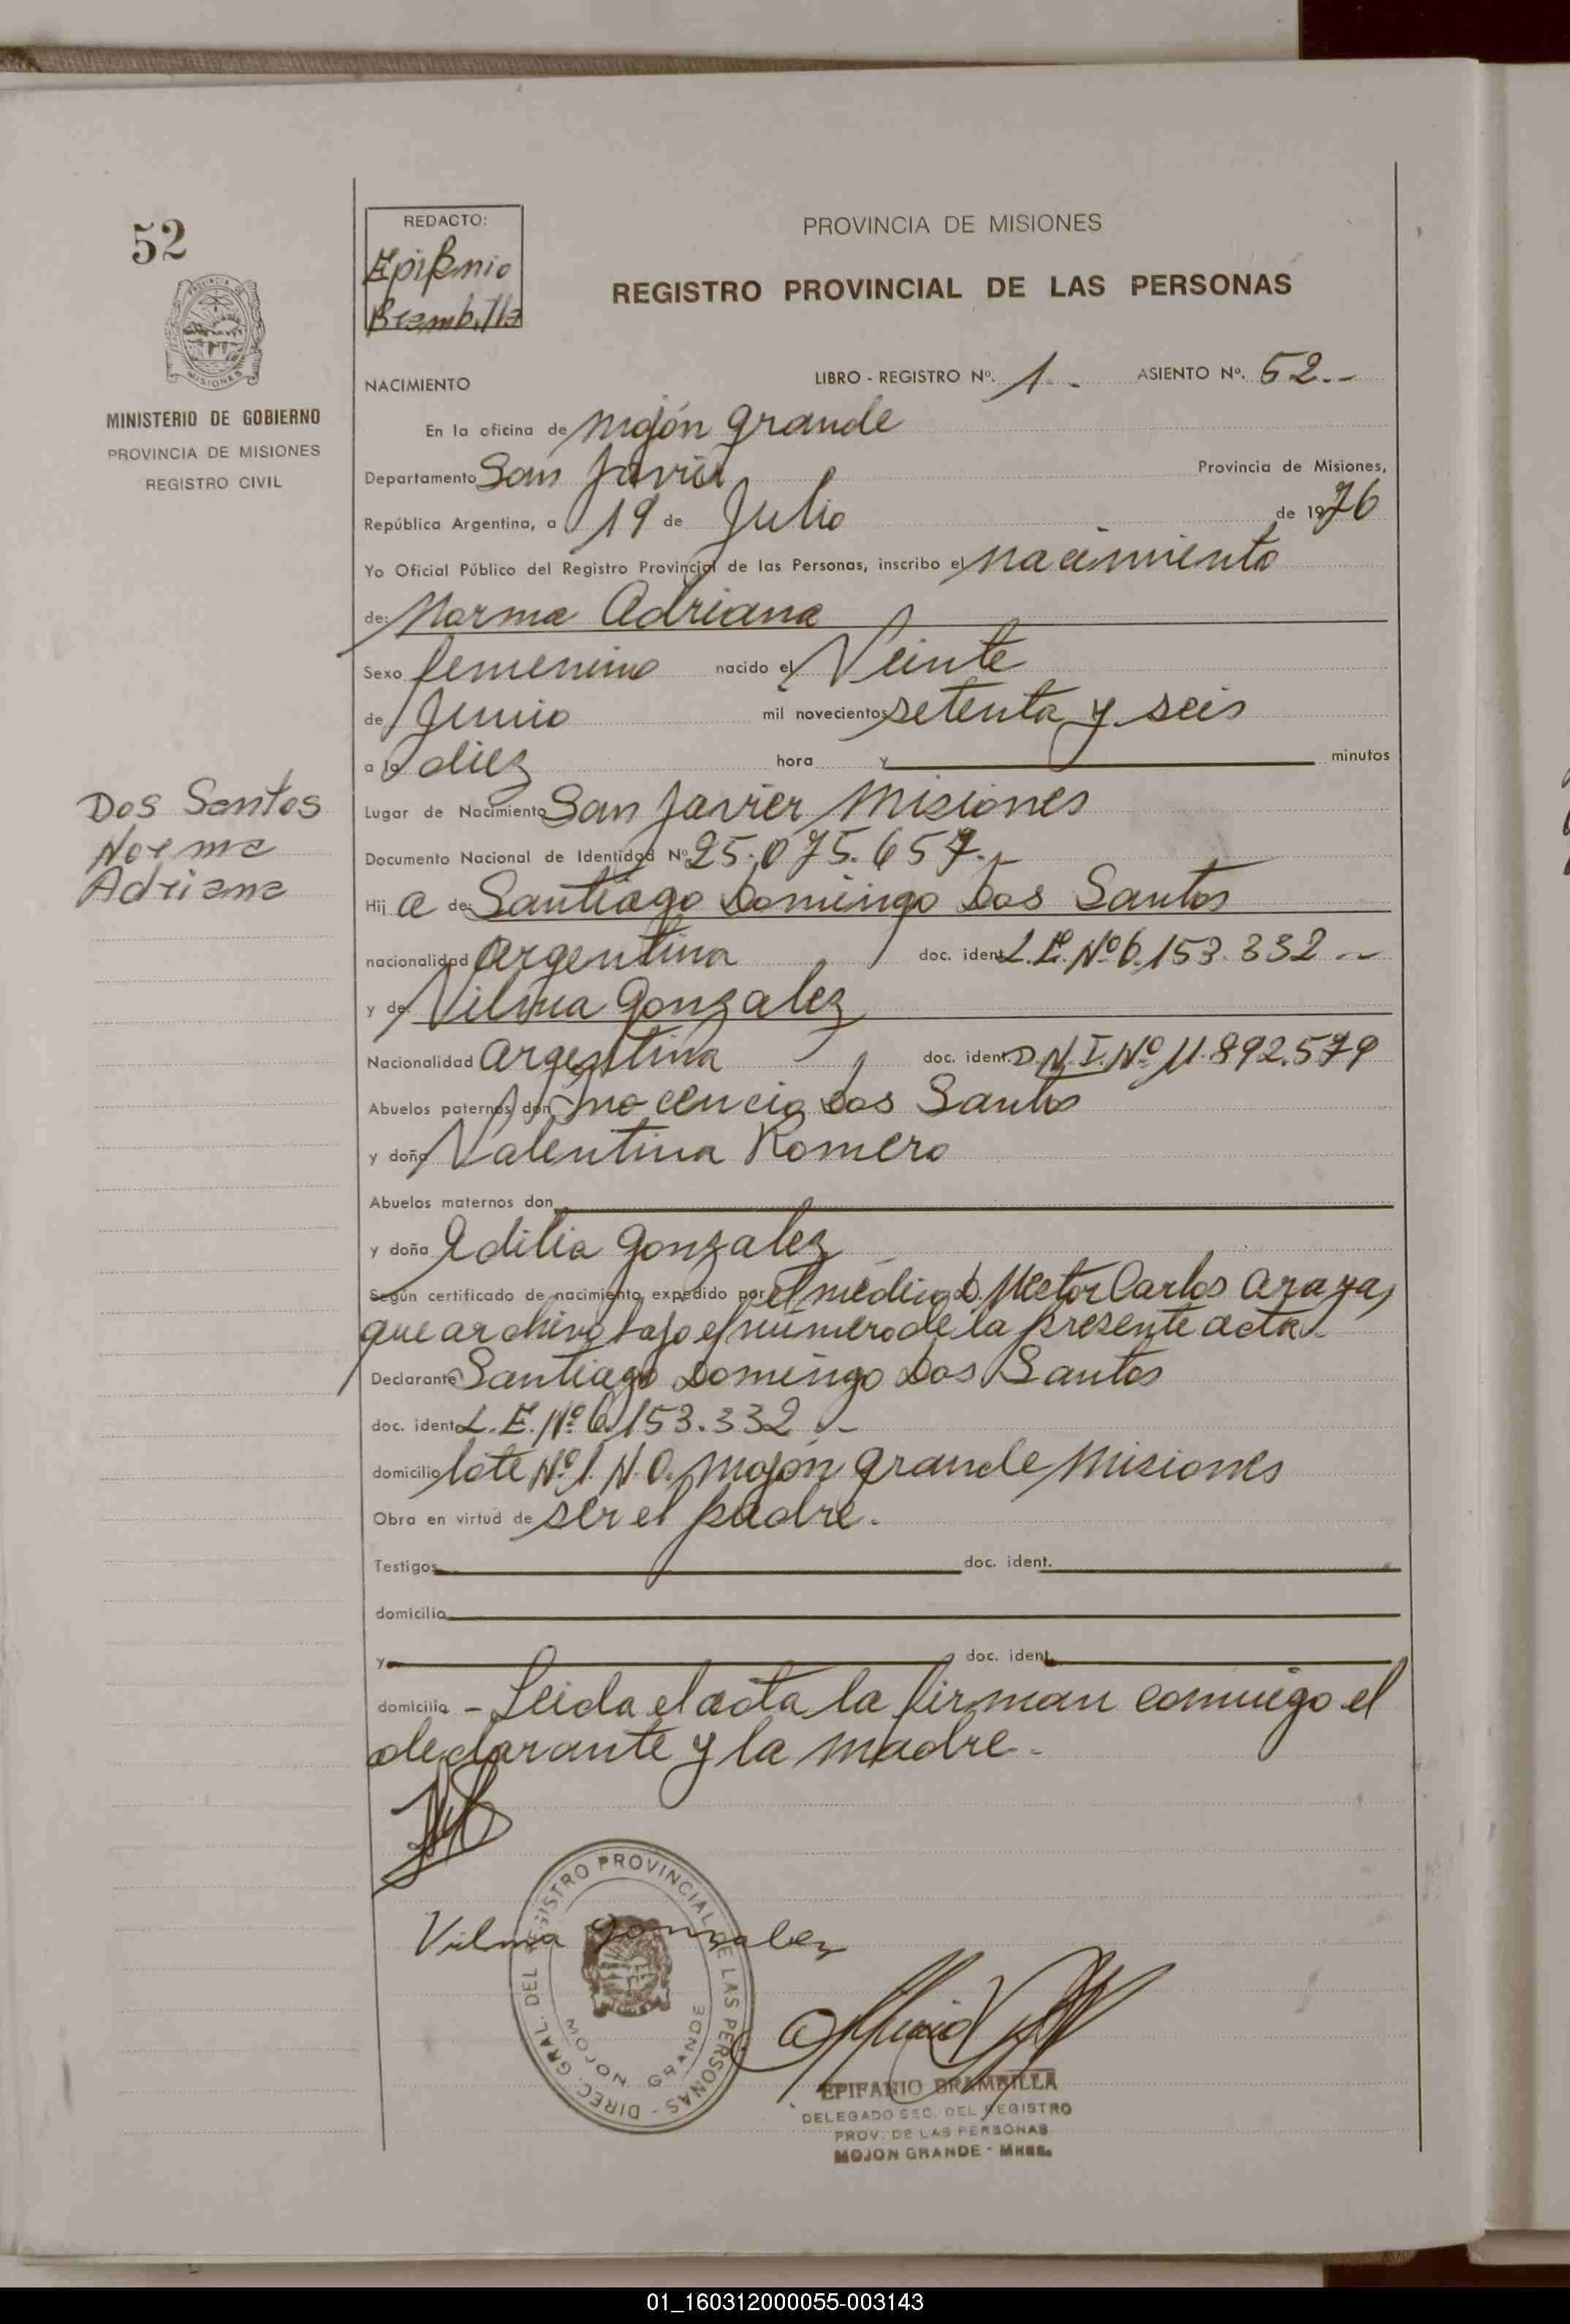 52
PROVINCIA DE MISIONES
MINISTERIO DE GOBIERNO
PROVINCIA DE MISIONES
REGISTRO CIVIL
Dos Santos
Norma
Adriana
REDACTO:
Epifanio
Brambilla
PROVINCIA DE MISIONES
REGISTRO PROVINCIAL DE LAS PERSONAS
NACIMIENTO
LIBRO - REGISTRO Nº. 1 - ASIENTO Nº. 52.-
En la oficina de Mojón Grande
Departamento San Javier Provincia de Misiones,
República Argentina, a 19 de Julio de 1976
Yo Oficial Público del Registro Provincial de las Personas, inscribo el nacimiento
de: Norma Adriana
Sexo femenino nacido el Veinte
de Junio mil novecientos setenta y seis
a la diez hora y minutos
Lugar de Nacimiento San Javier Misiones
Documento Nacional de Identidad Nº 25.075.657.-
Hij a de: Santiago Domingo Dos Santos
nacionalidad Argentina doc. ident. L.E. Nº 6.153.332 -
y de: Vilma Gonzalez
Nacionalidad Argentina doc. ident. D.N.I. Nº 11.892.579
Abuelos paternos don Inocencio Dos Santos
y doña Valentina Romero
Abuelos maternos don
y doña Edilia Gonzalez
Según certificado de nacimiento expedido por el médico D. Hector Carlos Araya,
que archivo bajo el número de la presente acta.
Declarante Santiago Domingo Dos Santos
doc. ident. L.E. Nº 6.153.332 .-
domicilio lote Nº 1. N.O. Mojón Grande Misiones
Obra en virtud de ser el padre.
Testigos doc. ident.
domicilio
y doc. ident.
domicilio - Leida el acta la firman conmigo el
declarante y la madre.-
Vilma Gonzalez
DIREC. GRAL. DEL REGISTRO PROVINCIAL DE LAS PERSONAS -
MOJON GRANDE
EPIFANIO BRAMBILLA
DELEGADO SEC. DEL REGISTRO
PROV. DE LAS PERSONAS
MOJON GRANDE - Mnes.
01_160312000055-003143